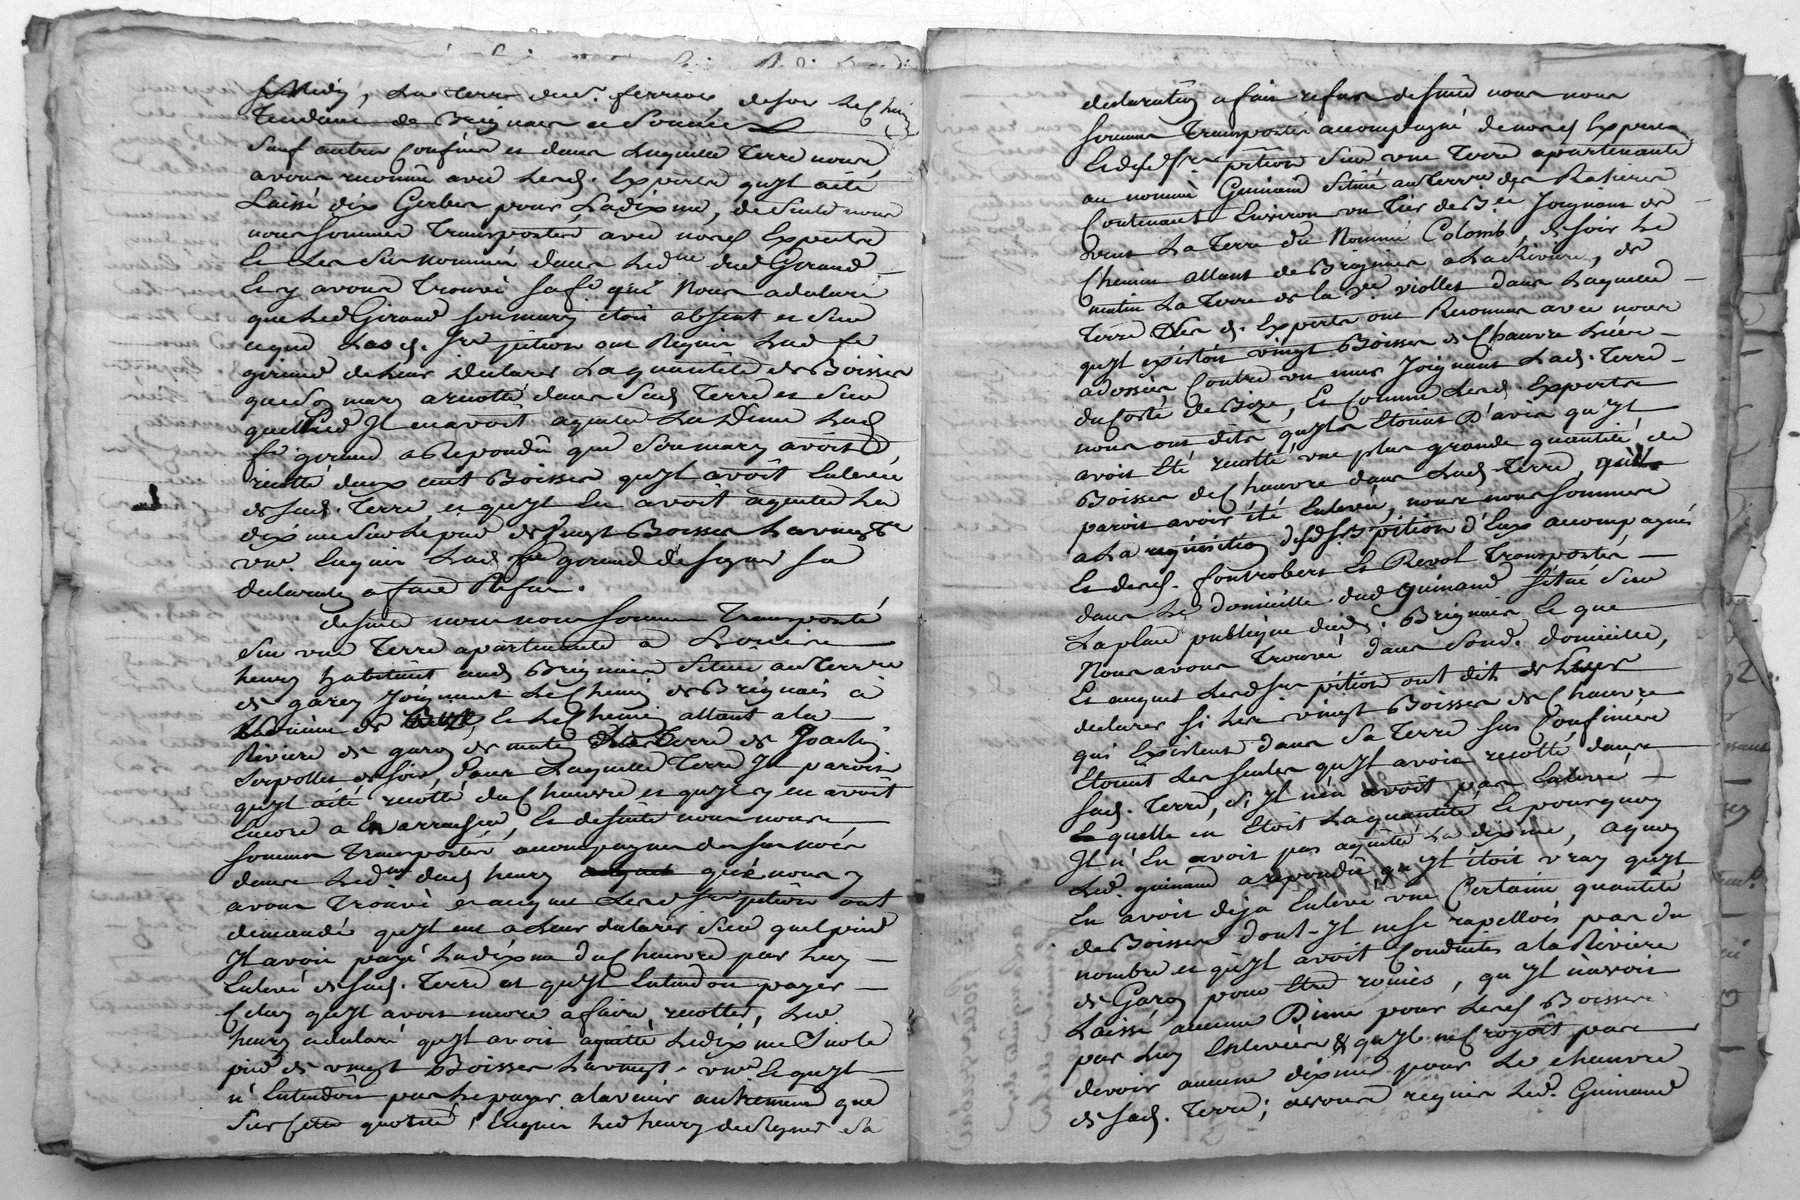 midy, La terre dud. ferriol, desoir Le Chin
Tendant de Brignais a Soucieu
Sauf autres Confins et dans Laquelle Terre nous
avons reconnu avec Lesd. Experts quyl aété
Laissé dix Gerbes pour Ladixme, desuite nous
nous sommes Transportés avec nosd Experts
Et les susnommés dans Led.ne dud Giraud
Et y avons Trouvé safe qui Nous adeclaré
que Led Giraud son mary étoit absent et sur
ceque Lesd. Srs pition ont Requis Lad fe
giraud deleur Declarer La quantité de Boisses
que Son mary arecolté dans Sad Terre et sur
quel Pied Il enavoit aquitté La Dime Lad
fe giraud a Repondû que Son mary avoit
recolté deux cent Boisses quyl avoit Enlevée
de sad. Terre, et quyl En avoit aquitté La
dixme sur Le pied de vingt Boisses Lavingte
une Enquis Lad fe giraud designer sa
declaration afaire Refus.
desuite nous nous sommes Transporté
sur une Terre apartenante a Louis
henry habitant aud Brignais Située au Terre
de garon Joignant Le Chemin de Brignais à
et Le Chemin allant ala
Riviere de garon de matin La Terre de Joachin
Serpollet desoir, Dans Laquelle Terre Il paroit
quyl aété recolté du Chanvre et quyl y en avoit
Encore a En arracher, Et desuite nous nous
sommes Transportés, accompagnes des susnoés
dans Led.ne dud henry que nous y
avons Trouvé et auquel Lesd Srs pition ont
demandé quyl eut aleur declarer sur quel pied
Il avoit payé La dixme du Chanvre par Luy
Enlevé de sad. Terre et quyl Entendoit payer
Celuy quyl avoit encore afaire recolter, Led
henry adeclaré quyl avoit aquitté La dixme sur le
pied de vingt Boisses Lavingt-une Et quyl
n'Entendoit pas Le payer alavenir autrement que
sur Cette quotité, Enquis Led henry designer Sa
declaration afait refus desuite nous nous
sommes Transportés accompagné denosd Experts
Et desd Srs pition sur une Terre apartenante
au nommé Guinand Située au Terre des Rakeres
Contenant Environ un Tier de B.ée Joignant de
vent La Terre du Nommé Colomb, desoir Le
Chemin allant de Brignais alaRiviere, de
matin La Terre de la Ve. viollet dans Laquelle
Terre Les d. Experts ont Reconnus avec nous
quyl existoit vingt Boisses de Chanvre Liées
adossées Contre un mur Joignant Lad. Terre
du Costé de Bize, Et Comme Lesd. Experts
nous ont dits quyls Etoient D'avis quyl
avoit Eté recolté une plus grande quantité de
Boisses de Chanvre dans Lad. Terre, qui
paroit avoir été Enlevé, nous nous sommes
a La requisition desd Srs pition d'Eux accompagnés
Et desd. fontrobert Et Revol Transportés
dans Le domicille dud Guinand Situé sur
La place publique dud. Brignais Et que
Nous avons Trouvé dans sond. domicille,
Et auquel Lesd Srs pition ont dit de
declarer si Les vingt Boisses de Chanvre
qui Existent dans Sa Terre sus Confinée
Etoient Les seules quyl avoit recolté dans
sad. Terre, Si Il n'en avoit pas Enlevé
quelle en Etoit La quantité Et pourquoy
Il n'En avoit pas aquitté La dixme, aquoy
Led. guinand a repondu qu'yl étoit vray quyl
En avoit deja Enlevé une Certaine quantité
de Boisses dont-Il ne se rapelloit pas du
nombre et quyl avoit Conduites a la Riviere
de Garon pour Etre rouies, qu'yl n'avoit
Laissé aucune Dime pour Lesd Boisses
par Luy Enlevées & quyl ne Croyoit pas
devoir aucune dixme pour Le chanvre
de sad. Terre; avons requis Led. Guinand